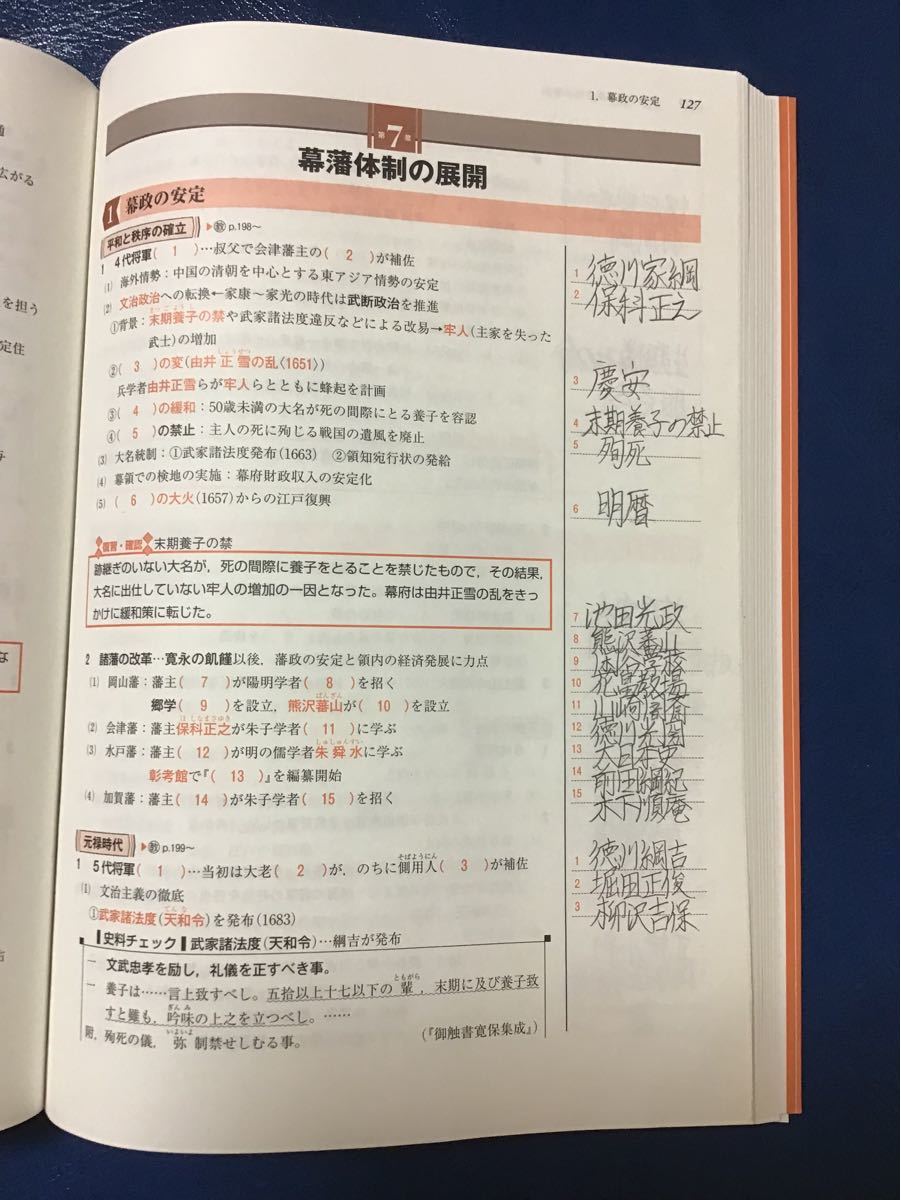 1. 幕政の安定 127
第7章
幕藩体制の展開
1 幕政の安定
平和と秩序の確立 ▶教p.198～
1 4代将軍( 1 )…叔父で会津藩主の( 2 )が補佐
⑴ 海外情勢：中国の清朝を中心とする東アジア情勢の安定
⑵ 文治政治への転換←家康～家光の時代は武断政治を推進
①背景：末期養子の禁や武家諸法度違反などによる改易→牢人(主家を失った
武士)の増加
②( 3 )の変(由井正雪の乱〈1651〉)
しょうせつ
兵学者由井正雪らが牢人らとともに蜂起を計画
③( 4 )の緩和：50歳未満の大名が死の間際にとる養子を容認
④( 5 )の禁止：主人の死に殉じる戦国の遺風を廃止
⑶ 大名統制：①武家諸法度発布(1663) ②領知宛行状の発給
⑷ 幕領での検地の実施：幕府財政収入の安定化
⑸ ( 6 )の大火(1657)からの江戸復興
復習・確認 末期養子の禁
跡継ぎのいない大名が，死の間際に養子をとることを禁じたもので，その結果，
大名に出仕していない牢人の増加の一因となった。幕府は由井正雪の乱をきっ
かけに緩和策に転じた。
2 諸藩の改革…寛永の飢饉以後，藩政の安定と領内の経済発展に力点
⑴ 岡山藩：藩主( 7 )が陽明学者( 8 )を招く
ばんざん
郷学( 9 )を設立，熊沢蕃山が( 10 )を設立
ほしなまさゆき
⑵ 会津藩：藩主保科正之が朱子学者( 11 )に学ぶ
しゅしゅんすい
⑶ 水戸藩：藩主( 12 )が明の儒学者朱舜水に学ぶ
彰考館で『( 13 )』を編纂開始
⑷ 加賀藩：藩主( 14 )が朱子学者( 15 )を招く
元禄時代 ▶教p.199～
そばようにん
1 5代将軍( 1 )…当初は大老( 2 )が，のちに側用人( 3 )が補佐
⑴ 文治主義の徹底
てんな
①武家諸法度(天和令)を発布(1683)
史料チェック 武家諸法度(天和令)…綱吉が発布
一 文武忠孝を励し，礼儀を正すべき事。
ともがら
一 養子は……言上致すべし。五拾以上十七以下の輩，末期に及び養子致
ぎんみ
すと雖も，吟味の上之を立つべし。……
いよいよ
附，殉死の儀，弥制禁せしむる事。 (『御触書寛保集成』)
1 徳川家綱
2 保科正之
3 慶安
4 末期養子の禁止
5 殉死
6 明暦
7 池田光政
8 熊沢蕃山
9 閑谷学校
10 花畠教場
11 山崎闇斎
12 徳川光圀
13 大日本史
14 前田綱紀
15 木下順庵
1 徳川綱吉
2 堀田正俊
3 柳沢吉保
通
広がる
を担う
定住